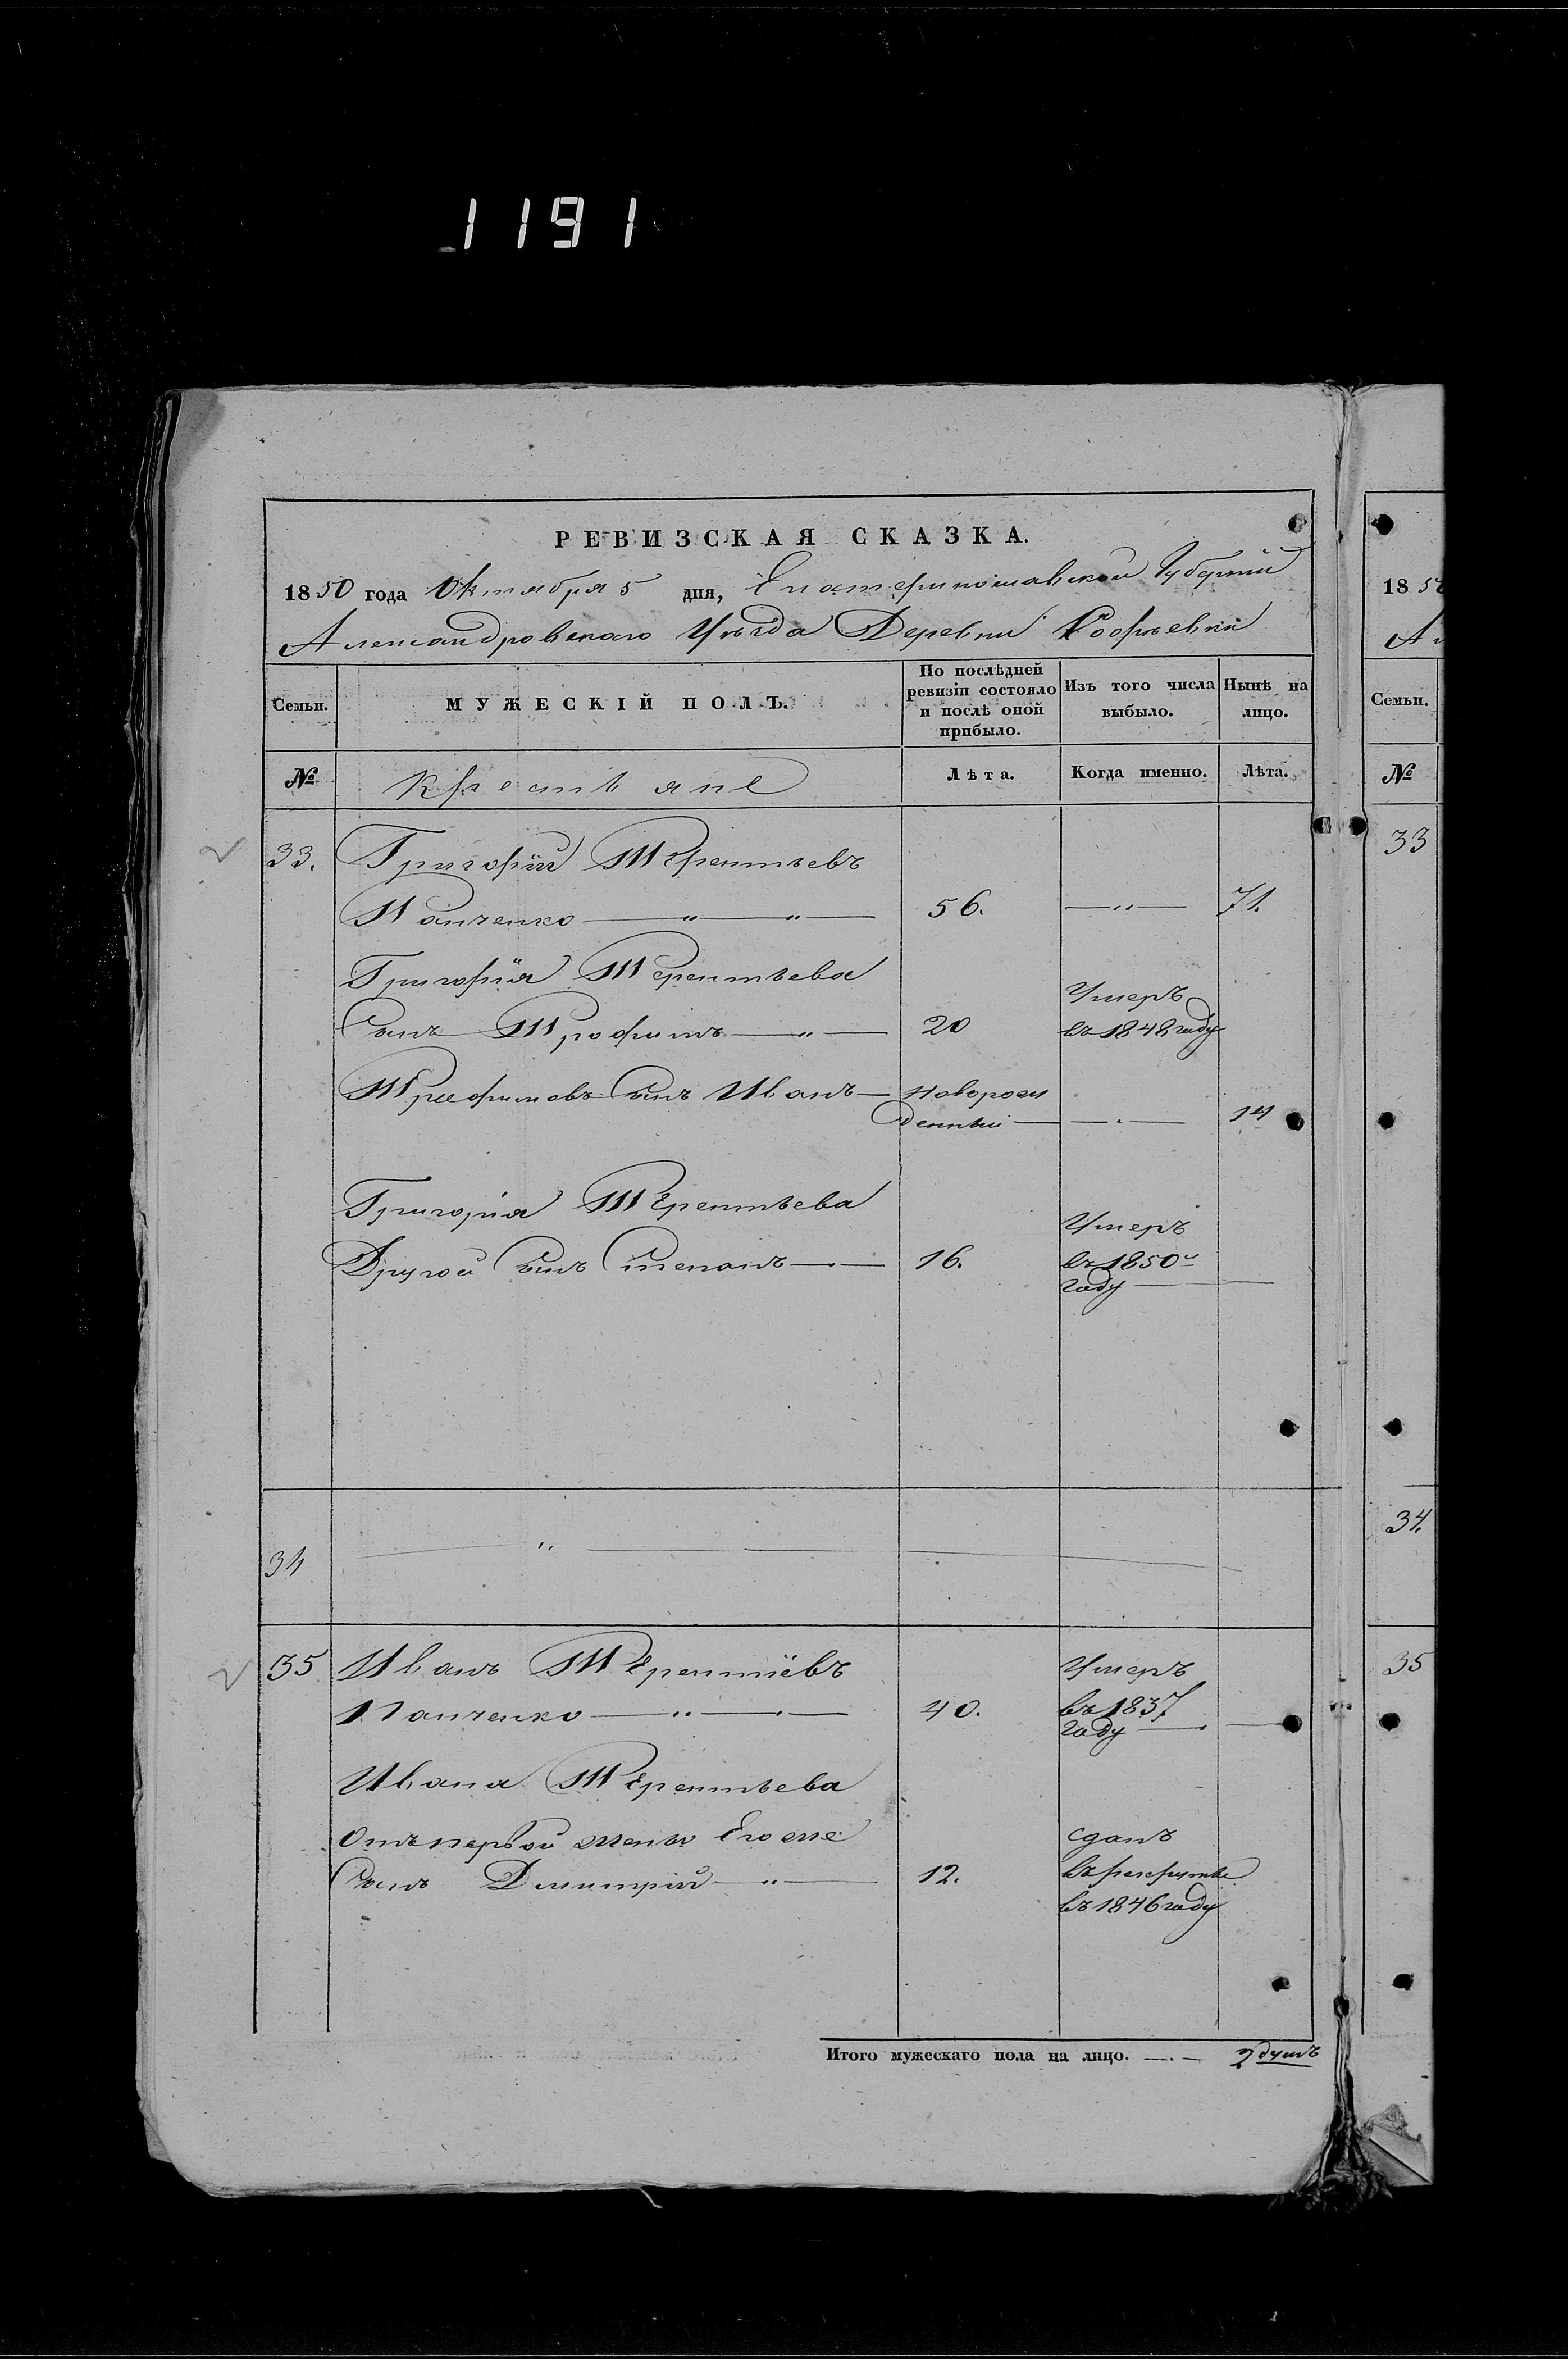 1191
РЕВИЗСКАЯ СКАЗКА.
1850 года Октября 5 дня, Екатеринославской Губерніи
Александровскаго Уѣзда Деревни Софіевки
Семьи.
МУЖЕСКІЙ ПОЛЪ.
По послѣдней ревизіи состояло и послѣ оной прибыло.
Изъ того числа выбыло.
Нынѣ на лицо.
№
Крестьяне
Лѣта.
Когда именно.
Лѣта.
33. Григорій Терентьевъ
Панченко — „ — „ — 56. — „ — 71.
Григорія Терентьева
Умеръ
Сынъ Трофимъ — „ — 20 въ 1848 году
Трофимовъ сынъ Иванъ — Новорож
денный — — . — 14
Григорія Терентьева
Умеръ
Другой сынъ Степанъ — — 16. въ 1850м
году — —
34 — „ — — — —
35 Иванъ Терентіевъ Умеръ
Панченко — „ — . — 40. въ 1837
году — . —
Ивана Терентьева
Отъ первой жены Его же Сданъ
Сынъ Дмитрій — „ — 12. въ рекруты
въ 1846 году
Итого мужескаго пола на лицо. — . — 2 душъ
1850
Семьи.
№
33
34.
35